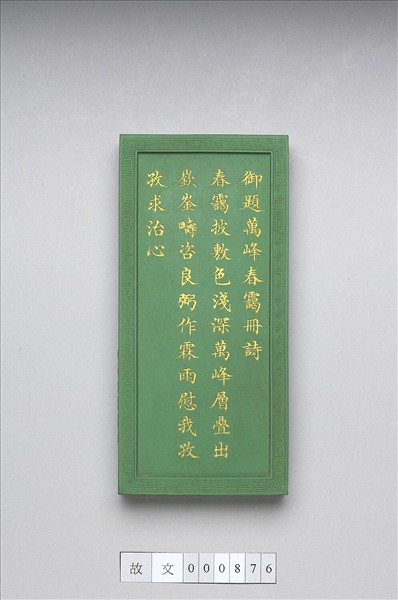 御題萬峰春靄冊詩
春靄披敷色淺深萬峰層疊出
嶔崟疇咨良弼作霖雨慰我孜
孜求治心
故文000876